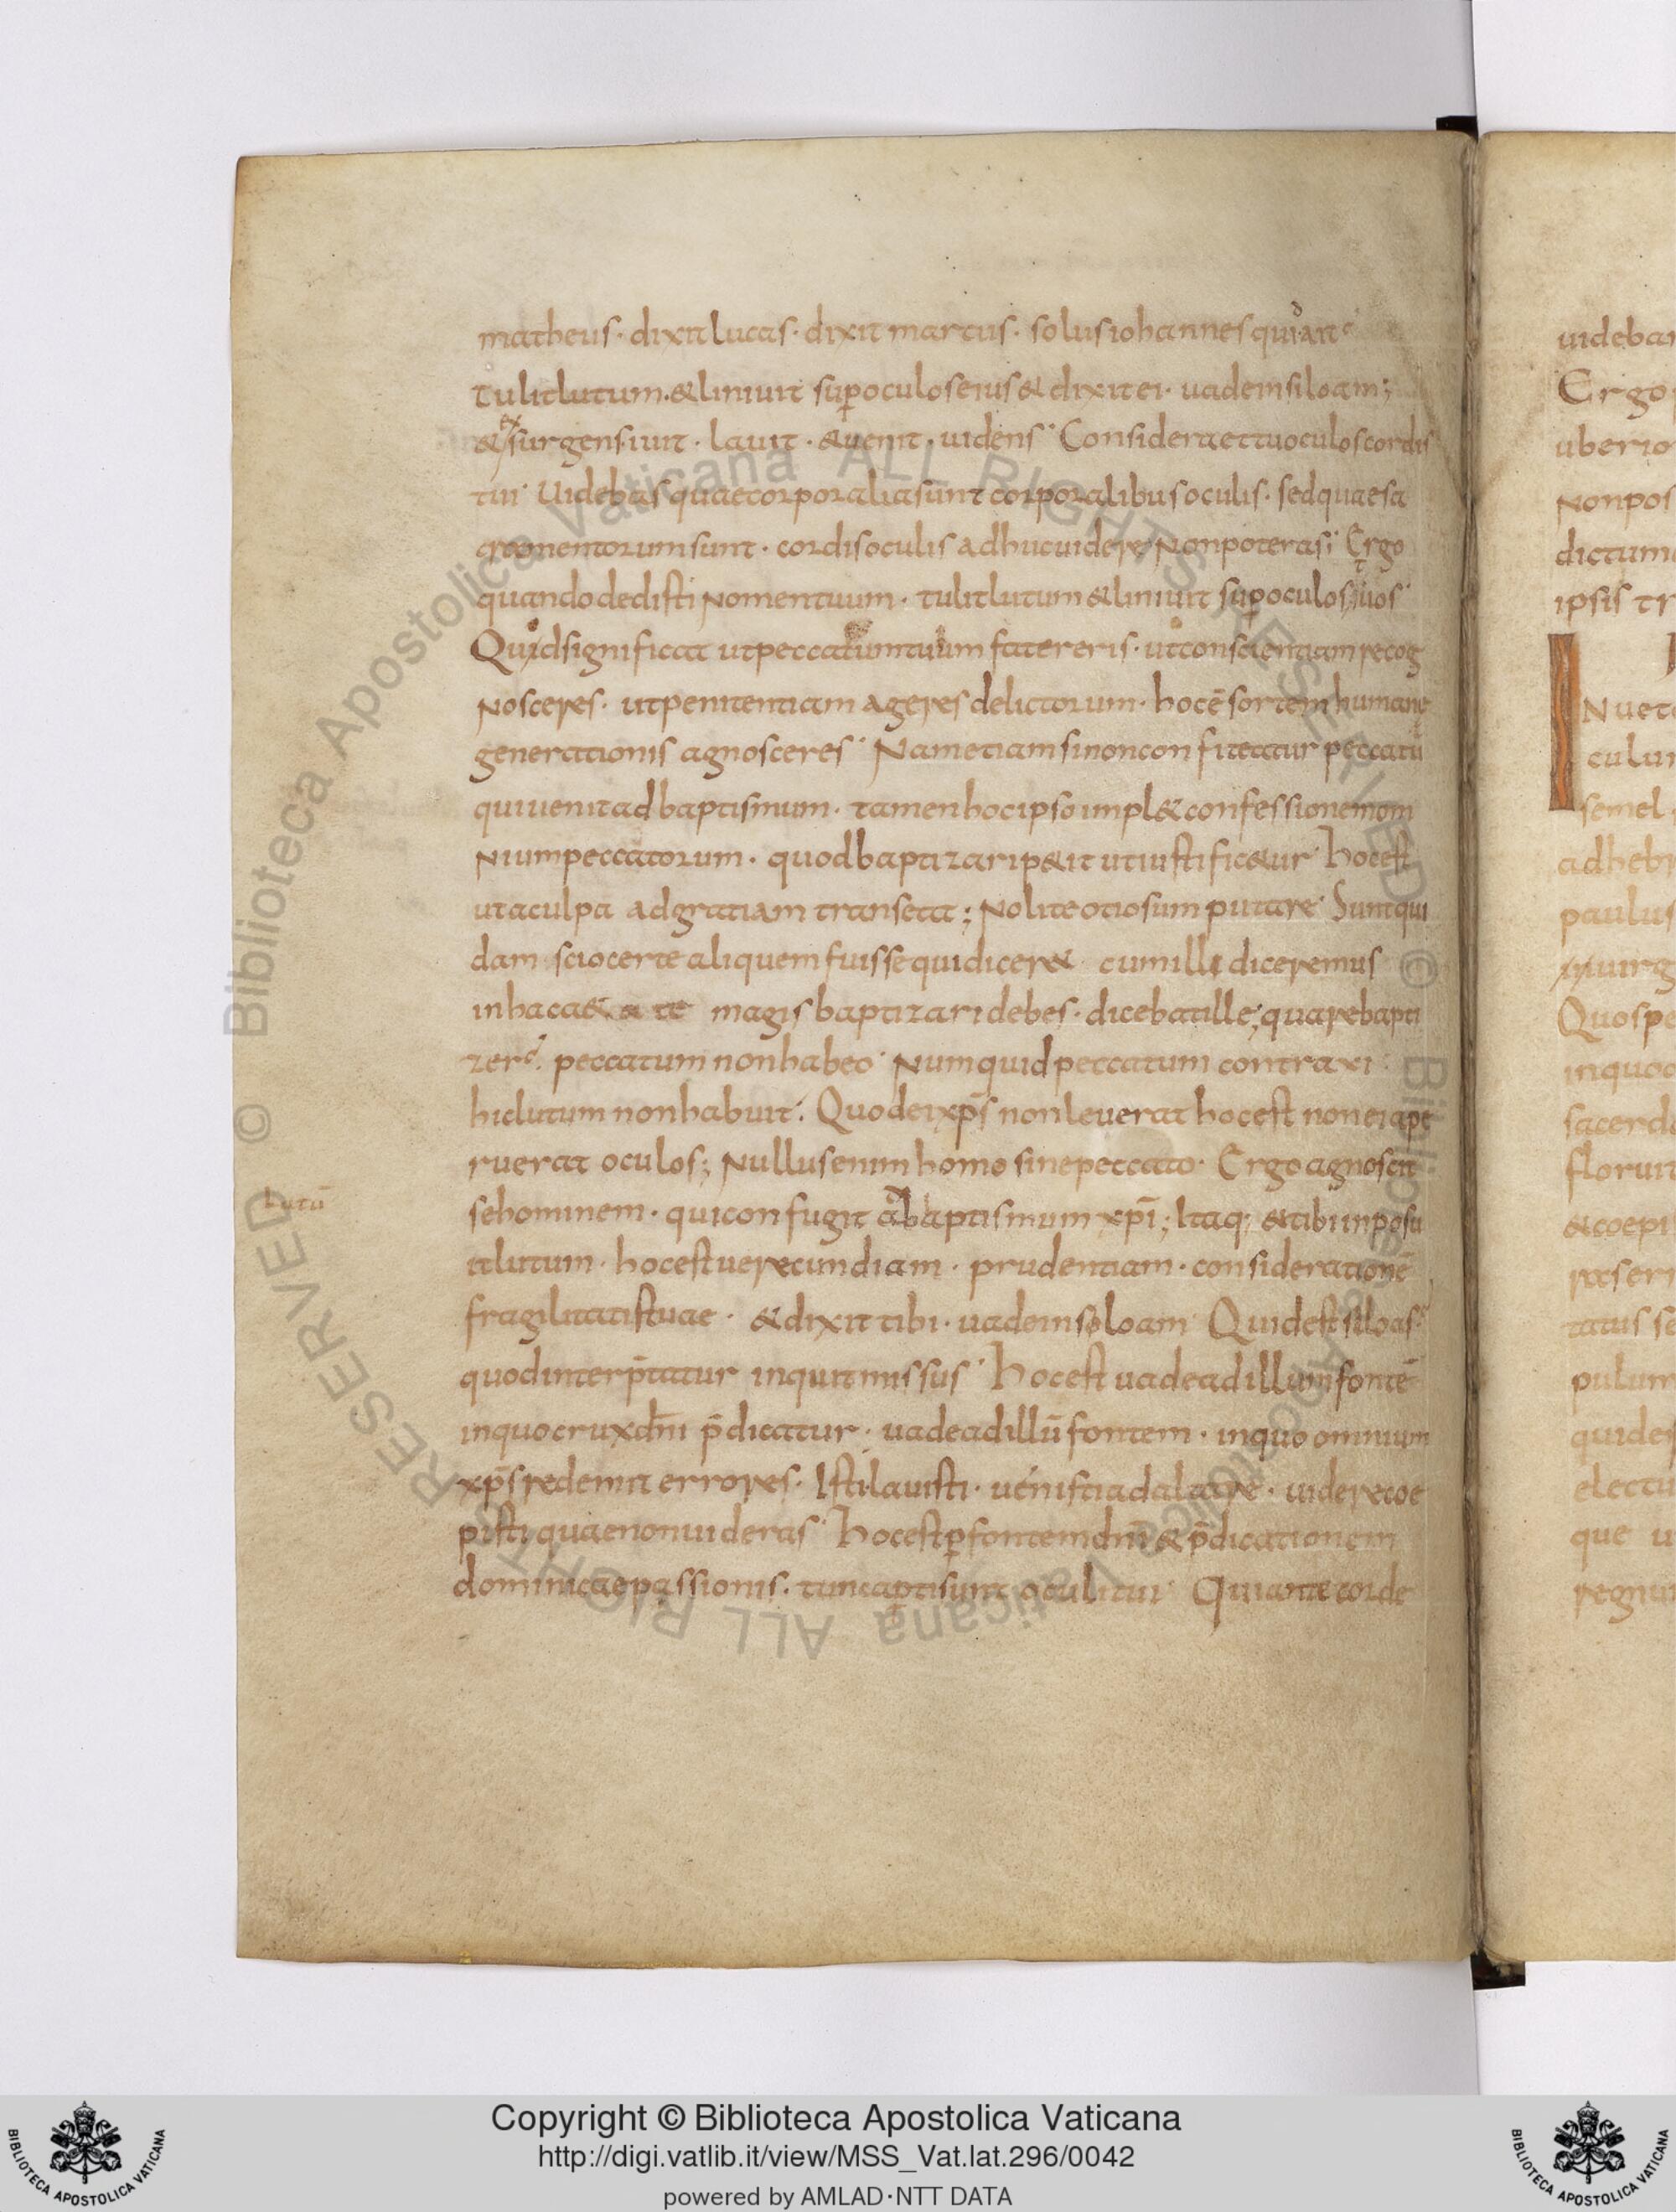 matheus · dixit lucas · dixit marcus · solus iohannes quid ait
Tulit lutum · & liniuit sup̱ oculos eius & dixit ei · uade in siloam ;
& exsurgens iuit · lauit · & uenit · uidens · Considera et tu oculos cordis
tui · Uidebas quae corporalia sunt corporalibus oculis · sed quae sa
cramentorum sunt · cordis oculis adhuc uidere non poteras ; Ergo
quando dedisti nomen tuum · tulit lutum & liniuit sup̱ oculos tuos ·
Quod significat ut peccatum tuum fatereris · ut conscientiam recog
nosceres · ut penitentiam ageres delictorum · hoc ē sortem humane
generationis agnosceres · Nam etiam si non confiteatur peccatū
qui uenit ad baptismum · tamen hoc ipso impl& confessionem om
nium peccatorum · quod baptizari p&it ut iustific&ur · hoc est
ut a culpa ad gratiam transeat ; Nolite otiosum putare · Sunt qui
dam · scio certe aliquem fuisse qui dicer& cum illi diceremus
in hac a&ate magis baptizari debes · dicebat ille ; quare bapti
zer peccatum non habeo · Numquid peccatum contraxi ·
hic lutum non habuit · Quod ei xp̄s non leuerat hoc est non ei ape
ruerat oculos ; Nullus enim homo sine peccato · Ergo agnoscit
se hominem · qui confugit ad baptismum xp̄i ; Itaq; & tibi inposu
it lutum · hoc est uerecundiam · prudentiam · considerationē
fragilitatis tuae · & dixit tibi · uade in siloam Quid est siloas
quod interp̄tatur inquit missus · hoc est uade ad illum fontē
in quo crux dn̄i p̄dicatur · uade ad illū fontem · in quo omnium
xp̄s redemit errores · Isti · lauisti · uenisti ad altare · uidere coe
pisti quae non uideras · hoc est p̱ fontem dn̄i & p̄dicationem
dominicae passionis · tunc ap̱ti sunt oculi tui Qui ante corde
Lutū
uideba
Ergo
uberio
Nonpos
dictum
ipsis tr
INuet
culu
semel
adhebr
paulus
uirg
Quospe
inquo
sacerd
floruit
&coepi
raeseri
tatus se
pulum
quides
electu
que u
regnu
© Biblioteca Apostolica Vaticana ALL RIGHTS RESERVED
© Biblioteca Apostolica Vaticana ALL RIGHTS RESERVED
Copyright © Biblioteca Apostolica Vaticana
http://digi.vatlib.it/view/MSS_Vat.lat.296/0042
powered by AMLAD·NTT DATA
BIBLIOTECA APOSTOLICA VATICANA
BIBLIOTECA APOSTOLICA VATICANA